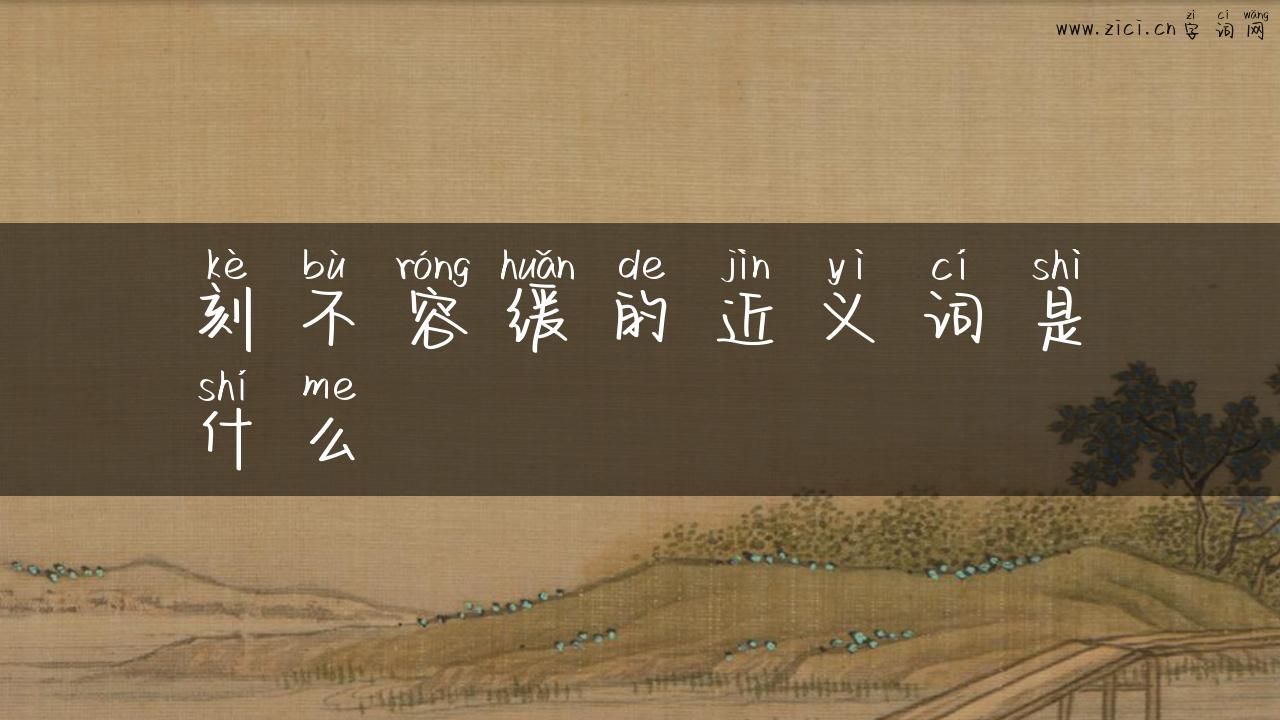 zì cí wǎng
www.zici.cn字词网
kè bù róng huǎn de jìn yì cí shì
刻不容缓的近义词是
shí me
什么